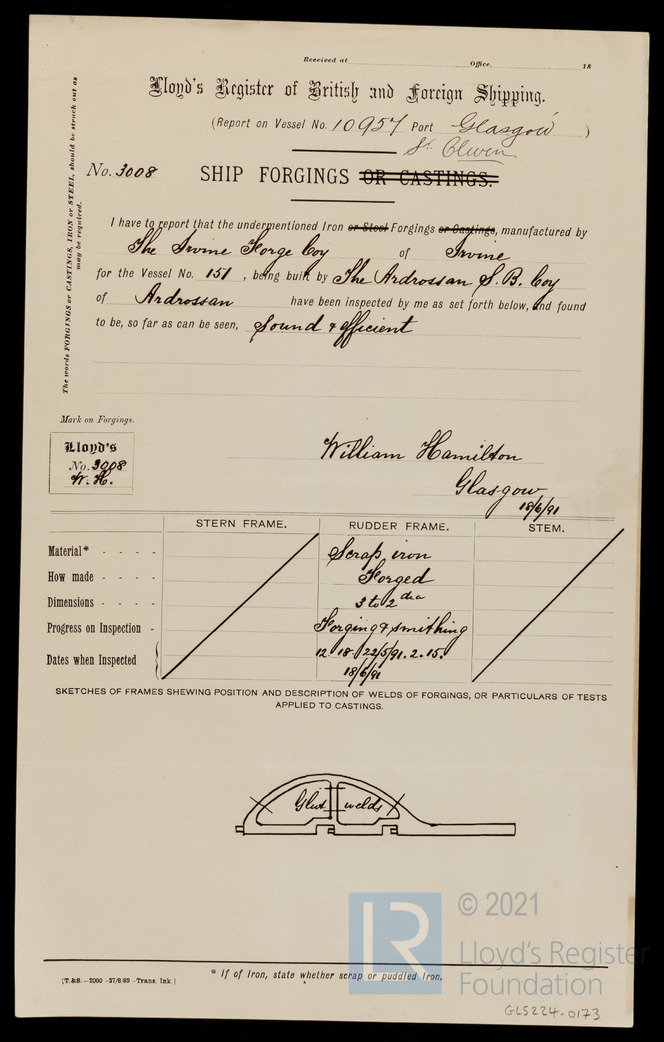 Received at Office. 18
Lloyd's Register of British and Foreign Shipping.
(Report on Vessel No. 10957 Port Glasgow )
St. Olwen
No. 3008 SHIP FORGINGS OR CASTINGS.
The words FORGINGS or CASTINGS, IRON or STEEL, should be struck out as
may be required.
I have to report that the undermentioned Iron or Steel Forgings or Castings, manufactured by
The Irvine Forge Coy of Irvine
for the Vessel No. 151 , being built by The Ardrossan S. B. Coy
of Ardrossan have been inspected by me as set forth below, and found
to be, so far as can be seen, Sound & efficient
Mark on Forgings.
Lloyd's
No. 3008
W. H.
William Hamilton
Glasgow
18/6/91
STERN FRAME. RUDDER FRAME. STEM.
Material* - - - - Scrap iron
How made - - - - Forged
Dimensions - - - - 3 to 2 dia
Progress on Inspection - Forging & smithing
Dates when Inspected 12. 18. 22/5/91. 2. 15.
18/6/91
SKETCHES OF FRAMES SHEWING POSITION AND DESCRIPTION OF WELDS OF FORGINGS, OR PARTICULARS OF TESTS
APPLIED TO CASTINGS.
Glut welds
* If of Iron, state whether scrap or puddled Iron.
[T.&S.—2000—27/8/89—Trans. Ink.]
LR
© 2021
Lloyd's Register
Foundation
GLS224-0173